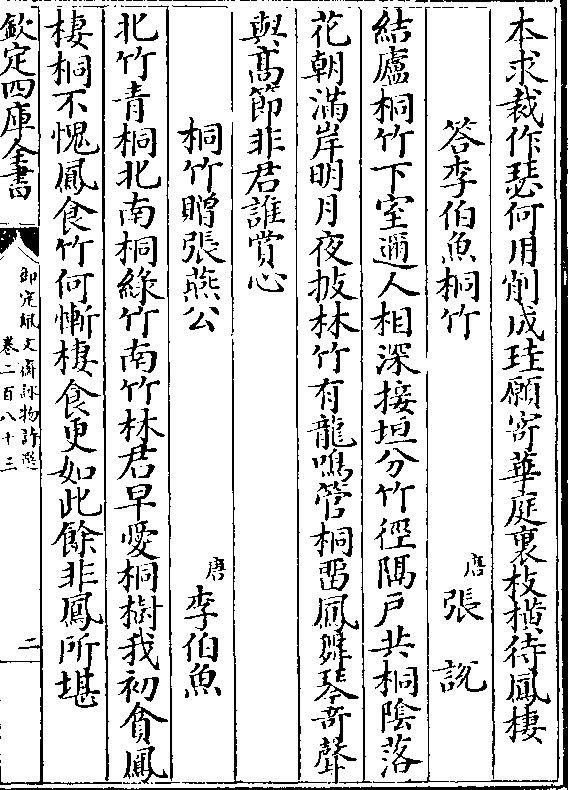 本求裁作瑟何用削成珪願寄華庭裏枝橫待鳳棲
答李伯魚桐竹　唐張說
結廬桐竹下室邇人相深接垣分竹徑隔戶共桐陰落
花朝滿岸明月夜披林竹有龍鳴管桐留鳳舞琴奇聲
與高節非君誰賞心
桐竹贈張燕公　唐李伯魚
北竹青桐北南桐綠竹南竹林君早愛桐樹我初貪鳳
棲桐不愧鳳食竹何慚棲食更如此餘非鳳所堪
欽定四庫全書
御定佩文齋詠物詩選
卷二百八十三
二